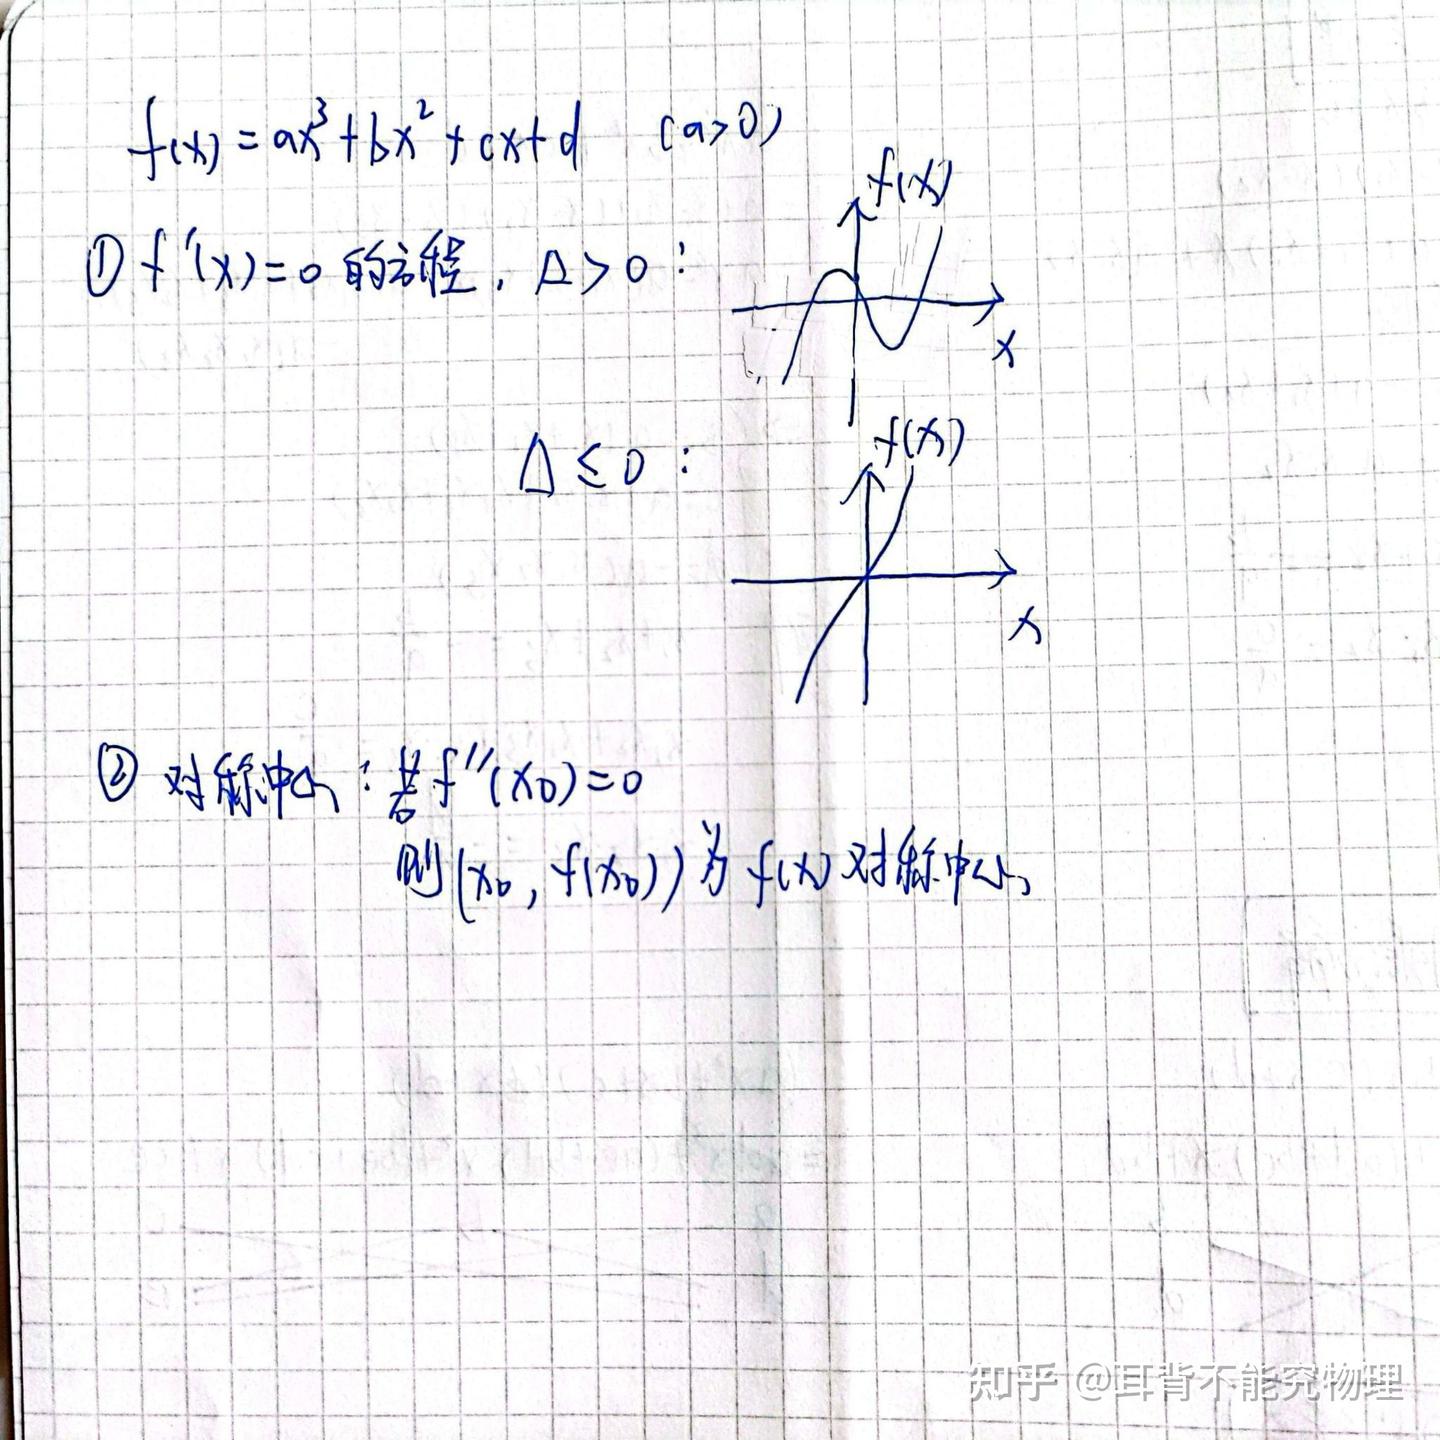 f(x)=ax³+bx²+cx+d (a>0)
f(x)
① f'(x)=0的方程,Δ>0:
x
f(x)
Δ≤0:
x
② 对称中心:若f''(x₀)=0
则(x₀,f(x₀))为f(x)对称中心
知乎 @耳背不能究物理